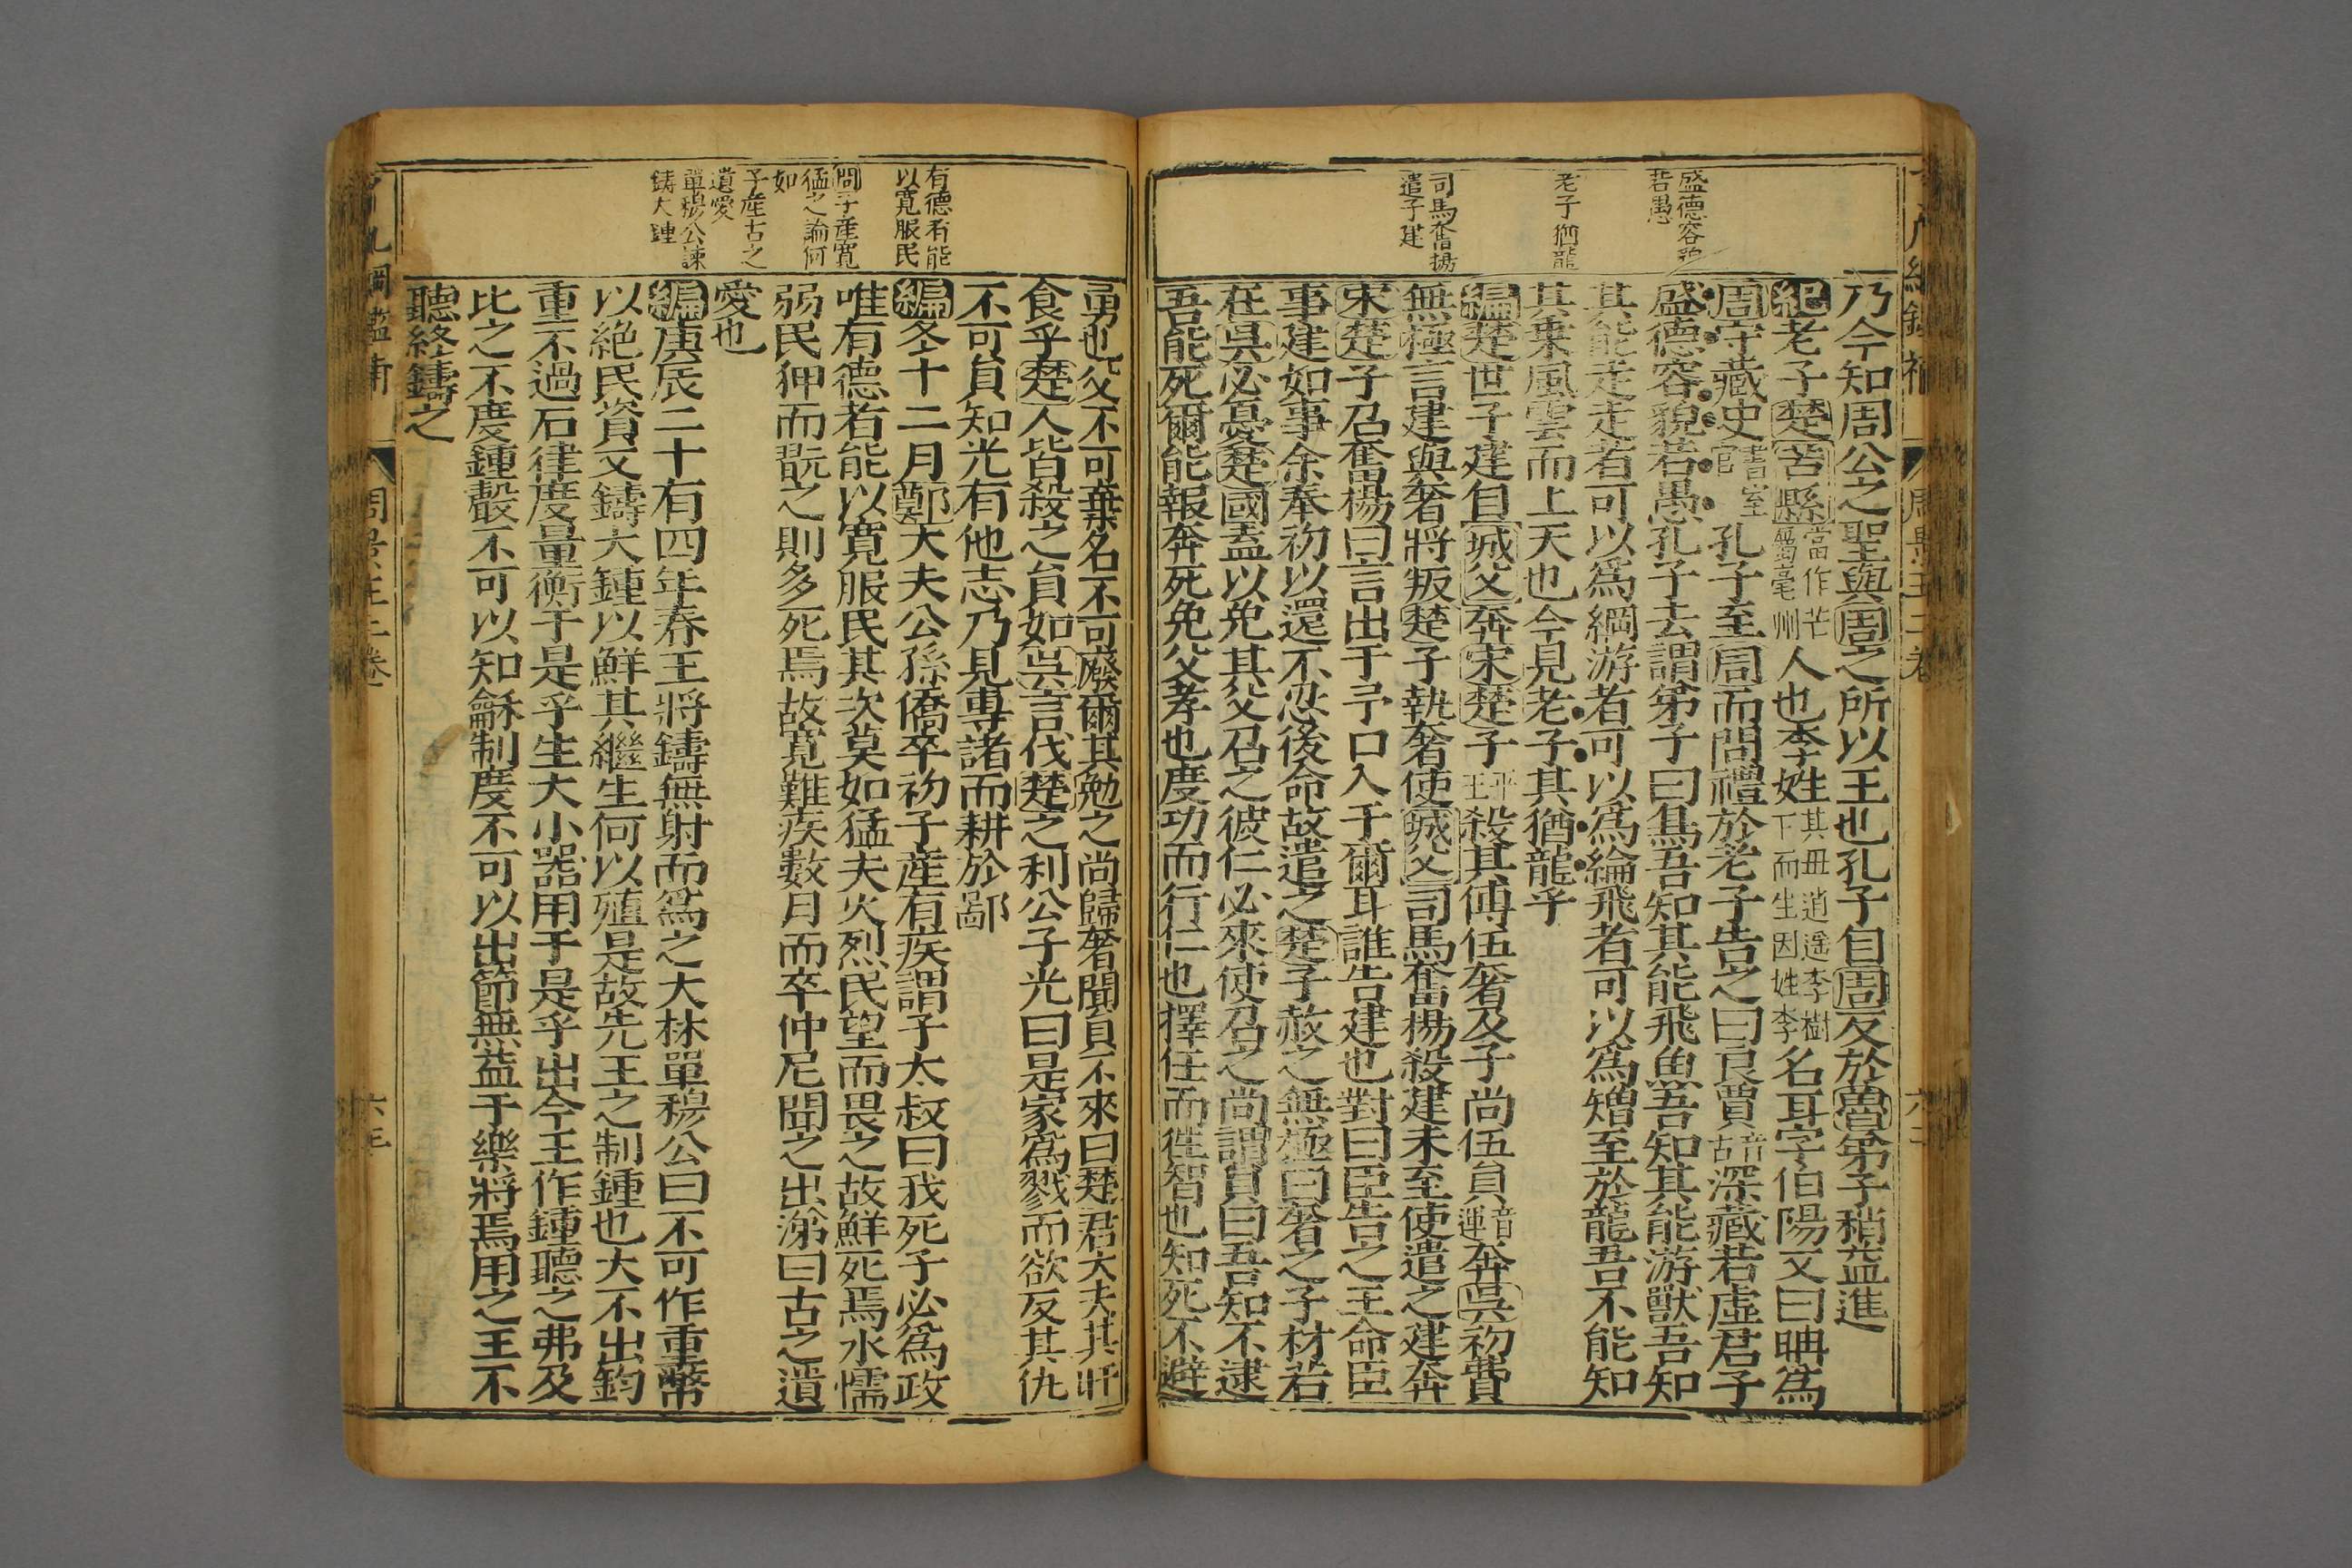 盛德容貌
若愚
老子猶龍
司馬奮揚
遣子建
乃今知周公之聖與周之所以王也孔子自周反於魯弟子稍益進
紀老子楚苦縣當作芒屬亳州人也李姓其母逍遥李樹下而生因姓李名耳字伯陽又曰耼爲
周守藏史官書室孔子至周而問禮於老子告之曰良賈音古深藏若虛君子
盛德容貌若愚孔子去謂弟子曰鳥吾知其能飛魚吾知其能游獸吾知
其能走走者可以爲綱游者可以爲綸飛者可以爲矰至於龍吾不能知
其乗風雲而上天也今見老子其猶龍乎
編楚世子建自城父奔宋楚子平王殺其傅伍奢及子尚伍員音運奔吳初費
無極言建與奢將叛楚子執奢使城父司馬奮揚殺建未至使遣之建奔
宋楚子召奮楊曰言出于予口入于爾耳誰告建也對曰臣告之王命臣
事建如事余奉初以還不忍後命故遣之楚子赦之無極曰奢之子材若
在吳必憂楚國盖以免其父召之彼仁必來使召之尚謂員曰吾知不逮
吾能死爾能報奔死免父孝也度功而行仁也擇任而徃智也知死不避
有德者能
以寬服民
問子產寬
猛之論何
如
子產古之
遺愛
單穆公諫
鑄大鍾
勇也父不可棄名不可廢爾其勉之尚歸奢聞員不來曰楚君大夫其旰
食乎楚人皆殺之員如吳言伐楚之利公子光曰是家爲戮而欲反其仇
不可員知光有他志乃見專諸而耕於鄙
編冬十二月鄭大夫公孫僑卒初子產有疾謂子太叔曰我死子必爲政
唯有德者能以寬服民其次莫如猛夫火烈民望而畏之故鮮死焉水懦
弱民狎而翫之則多死焉故寬難疾數月而卒仲尼聞之出涕曰古之遺
愛也
編庚辰二十有四年春王將鑄無射而爲之大林單穆公曰不可作重幣
以絶民資又鑄大鍾以鮮其繼生何以殖是故先王之制鍾也大不出鈞
重不過石律度量衡于是乎生大小器用于是乎出今王作鍾聽之弗及
比之不度鍾聲不可以知龢制度不可以出節無益于樂將焉用之王不
聽終鑄之
周景王二卷
六三